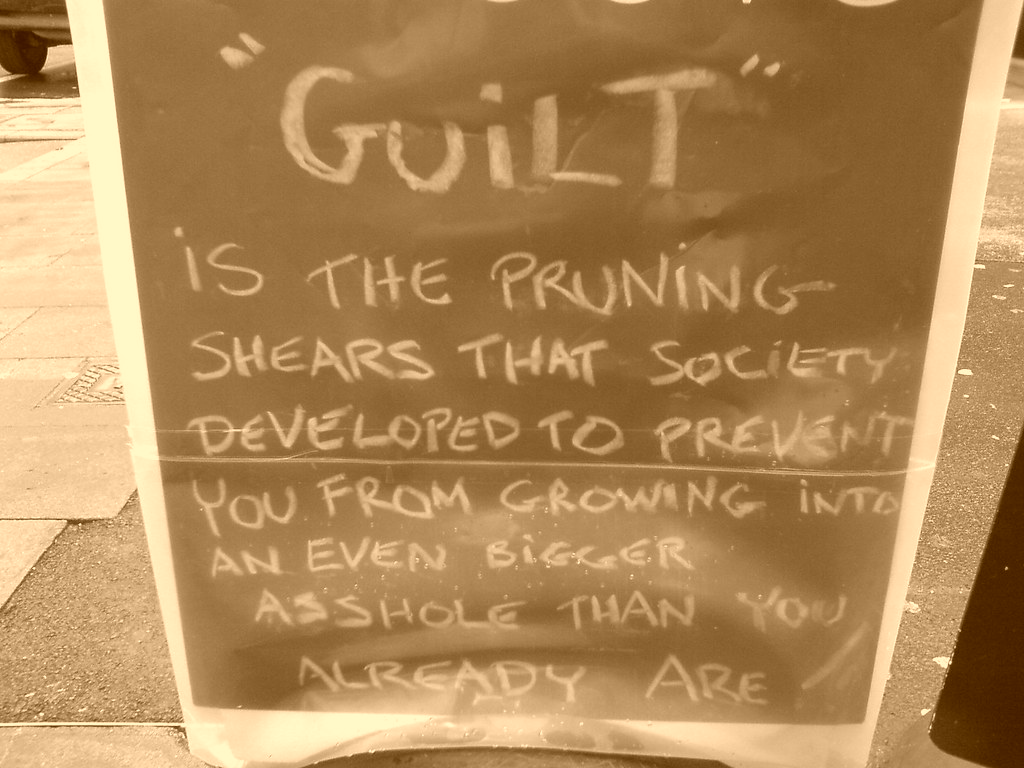 "GUiLT"
iS THE PRUNiNG
SHEARS THAT SOCiETY
DEVELOPED TO PREVENT
YOU FROM GROWING iNTO
AN EVEN BiGGER
ASSHOLE THAN YOU
ALREADY ARE